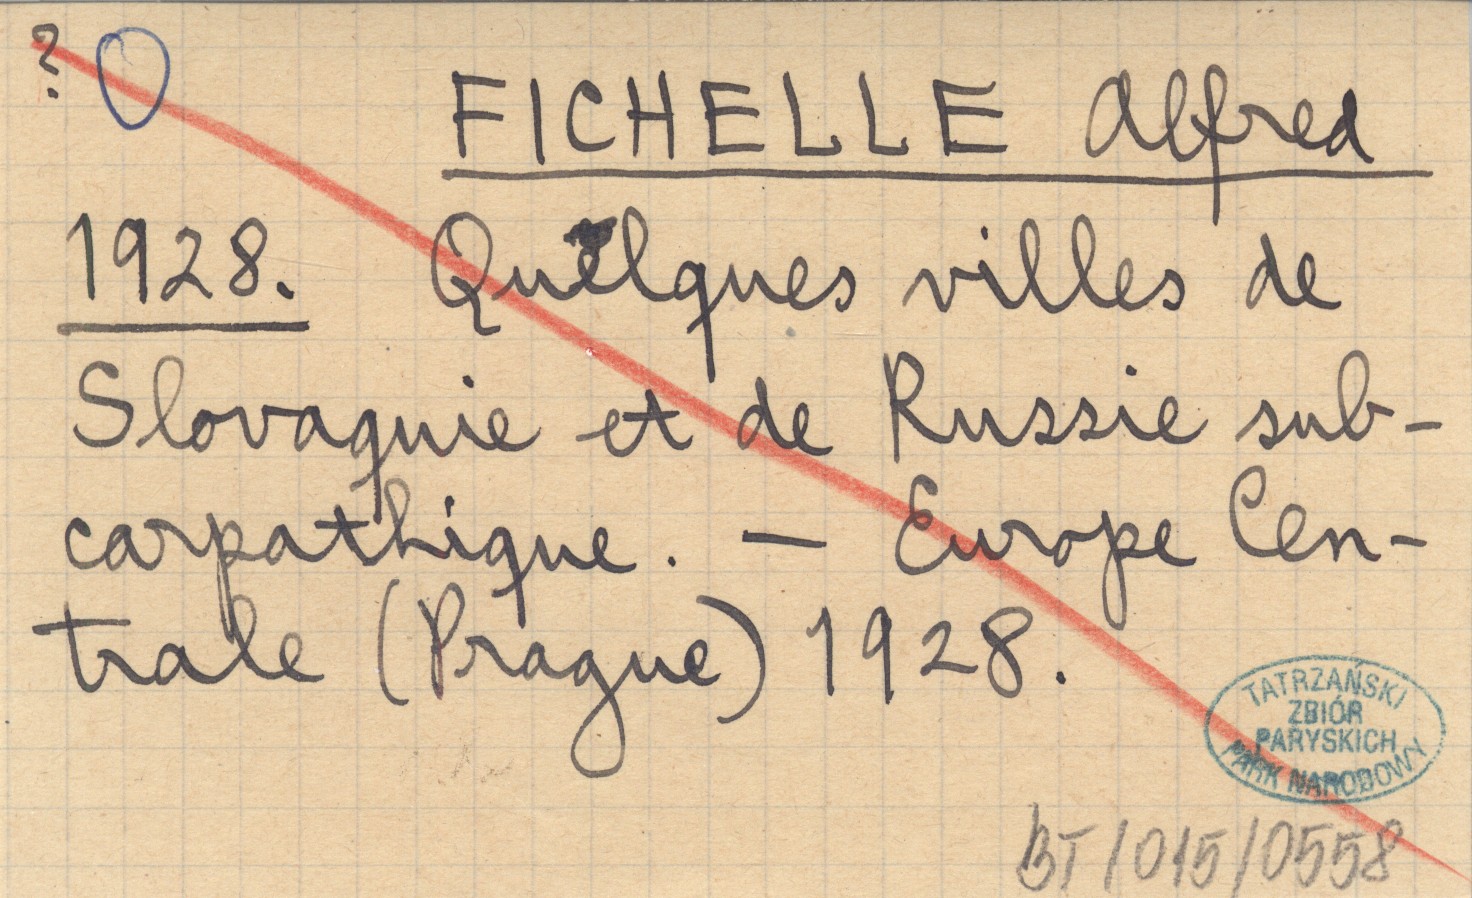 ?
FICHELLE Alfred
1928. Quelques villes de
Slovaquie et de Russie sub-
carpathique. — Europe Cen-
trale (Prague) 1928.
TATRZAŃSKI
ZBIÓR
PARYSKICH
PARK NARODOWY
BT/015/0558